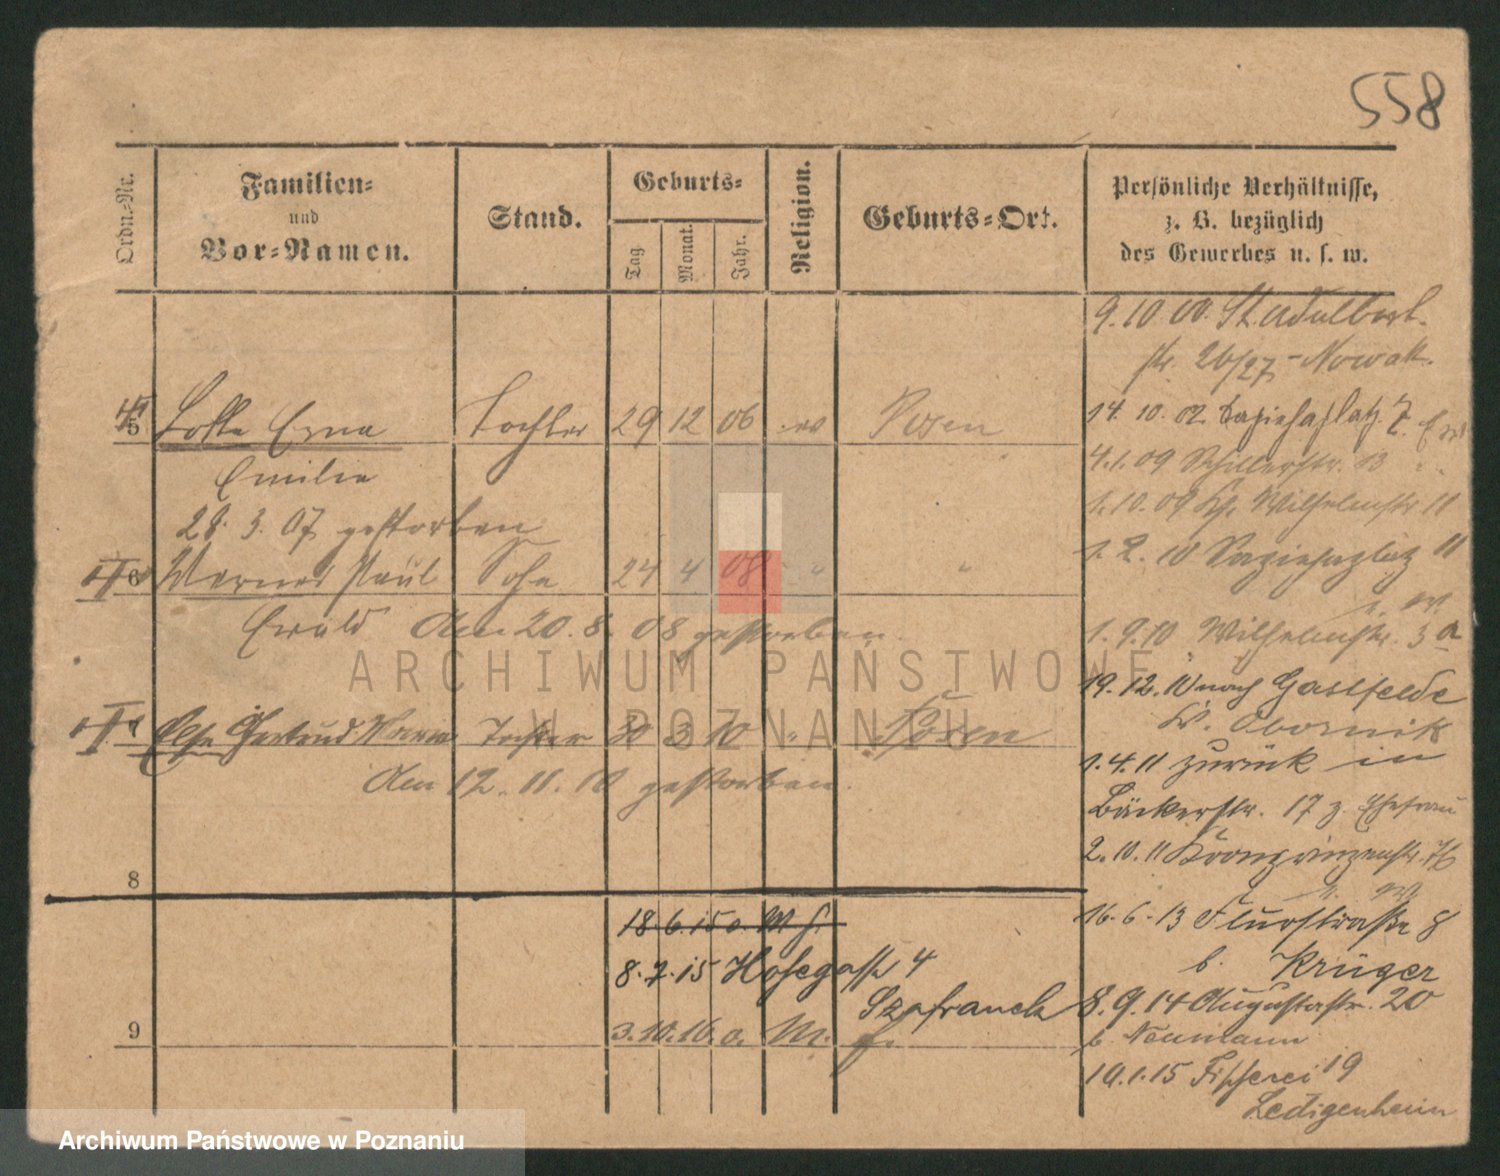 558
Ordn.-Nr.
Familien-
und
Vor-Namen.
Stand.
Geburts-
Tag.
Monat.
Jahr.
Religion.
Geburts-Ort.
Persönliche Verhältnisse,
z. B. bezüglich
des Gewerbes u. s. w.
9.10.00. St. Adalbert-
str. 26/27 - Nowak.
5 Lotte Erna Tochter 29 12 06 ev Posen
Emilie
28. 3. 07 gestorben
6 Werner Paul Sohn 24 4 08 " "
Ewald Am 20. 8. 08 gestorben.
7 Else Gertrud Tochter 30 3 10 " Posen
Am 12. 11. 10 gestorben.
8
9
14. 10. 02 Sapiehaplatz 7.
4.1.09 Schillerstr. 13
1.10.09 Wilhelmstr 11
1. 2. 10 Sapiehaplatz 11
1. 9. 10 Wilhelmstr. 3a
19. 12. 10 nach Gastfelde
Kr. Obornik
1. 4. 11 zurück in
Bäckerstr. 17 z. Ehefrau
2. 10. 11 Kronprinzenstr.
16. 6. 13 Flurstraße 8
b. Krüger
8. 9. 14 Augustastr. 20
b. Neumann
19. 1. 15 Fischerei 19
Ledigenheim
18. 6. 15 o. W f.
8. 7. 15 Hofegasse 4
Szafranek
3. 10. 16. o. M. f.
ARCHIWUM PAŃSTWOWE
W POZNANIU
Archiwum Państwowe w Poznaniu